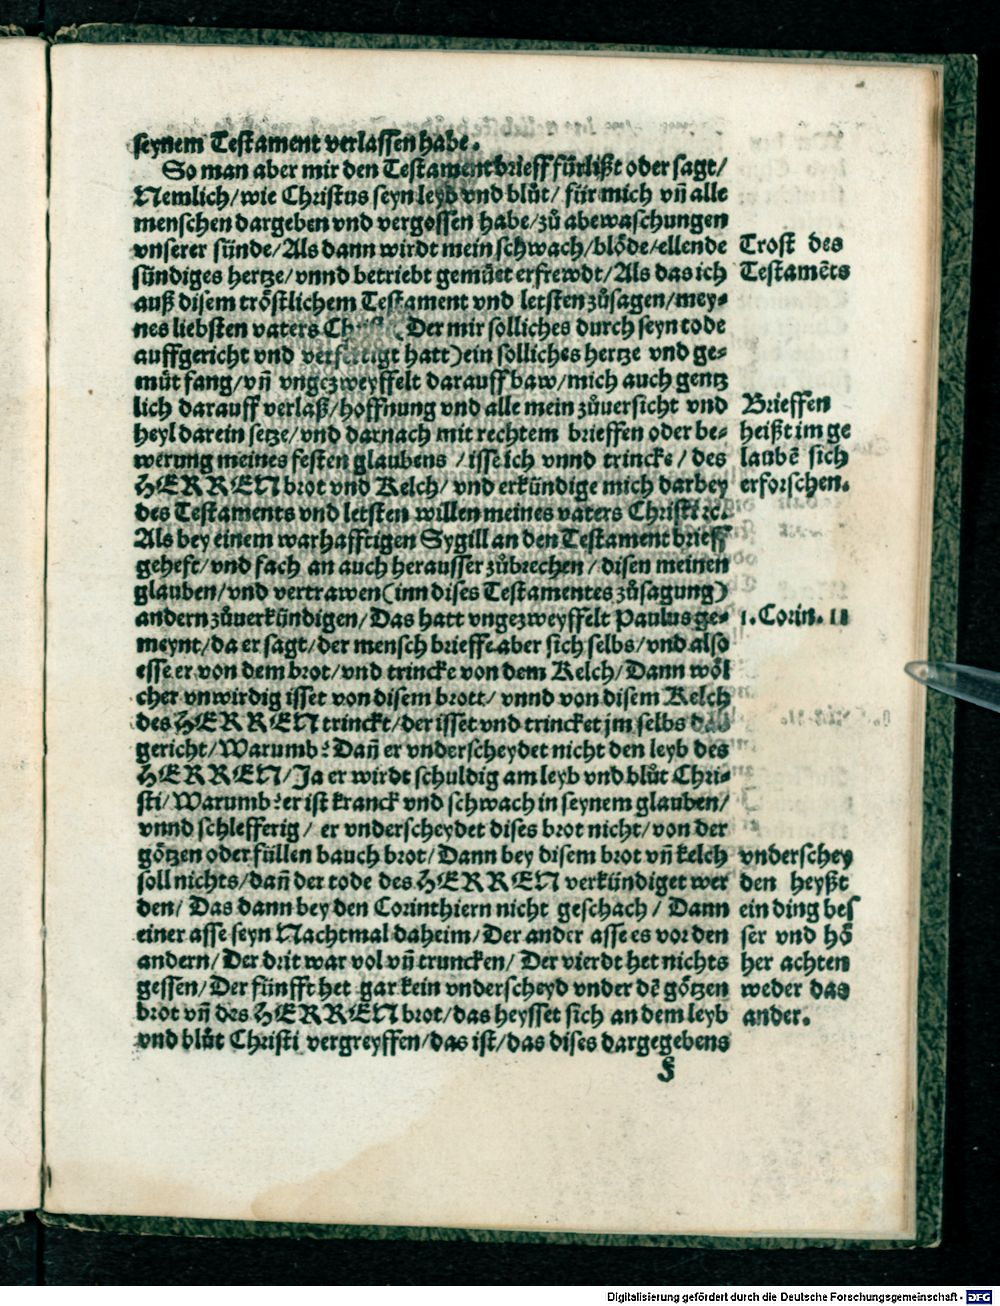 seynem Testament verlassen habe.
So man aber mir den Testament brieff fürlißt oder sagt/
Nemlich/wie Christus seyn leyb vnd blůt/ für mich vn̄ alle
menschen dargeben vnd vergossen habe/zů abewaschungen
vnserer sünde/Als dann wirdt mein schwach/blöde/ellende
sündiges hertze/vnnd betriebt gemůet erfrewdt/Als das ich
auß disem tröstlichem Testament vnd letsten zůsagen/mey-
nes liebsten vaters Christi (Der mir solliches durch seyn tode
auffgericht vnd verfertigt hatt)ein solliches hertze vnd ge-
můt fang/vn̄ vngezweyffelt darauff baw/mich auch gentz
lich darauff verlaß/hoffnung vnd alle mein zůuersicht vnd
heyl darein setze/vnd darnach mit rechtem brieffen oder be-
werung meines festen glaubens /isse ich vnnd trincke/ des
HERREN brot vnd Kelch/ vnd erkündige mich darbey
des Testaments vnd letsten willen meines vaters Christi ꝛc.
Als bey einem warhafftigen Sygill an den Testament brieff
geheft/vnd fach an auch herausser zůbrechen/ disen meinen
glauben/vnd vertrawen(inn dises Testamentes zůsagung)
andern zůuerkündigen/Das hatt vngezweyffelt Paulus ge-
meynt/da er sagt/der mensch brieffe aber sich selbs/vnd also
esse er von dem brot/vnd trincke von dem Kelch/Dann wöl
cher vnwirdig isset von disem brott/ vnnd von disem Kelch
des HERREN trinckt/der isset vnd trincket jm selbs das
gericht/Warumb? Dan̄ er vnderscheydet nicht den leyb des
HERREN/Ja er wirdt schuldig am leyb vnd blůt Chri-
sti/Warumb? er ist kranck vnd schwach in seynem glauben/
vnnd schlefferig/ er vnderscheydet dises brot nicht/von der
götzen oder füllen bauch brot/Dann bey disem brot vn̄ kelch
soll nichts/dan̄ der tode des HERREN verkündiget wer
den/ Das dann bey den Corinthiern nicht geschach/ Dann
einer asse seyn Nachtmal daheim/Der ander asse es vor den
andern/Der drit war vol vn̄ truncken/ Der vierdt het nichts
gessen/Der fünfft het gar kein vnderscheyd vnder dē götzen
brot vn̄ des HERREN brot/das heysset sich an dem leyb
vnd blůt Christi vergreyffen/das ist/das dises dargegebens
f
Trost des
Testamēts
Brieffen
heißt im ge
laubē sich
erforschen.
1. Corin. 11
vnderschey
den heyßt
ein ding bes
ser vnd hö
her achten
weder das
ander.
Digitalisierung gefördert durch die Deutsche Forschungsgemeinschaft - DFG